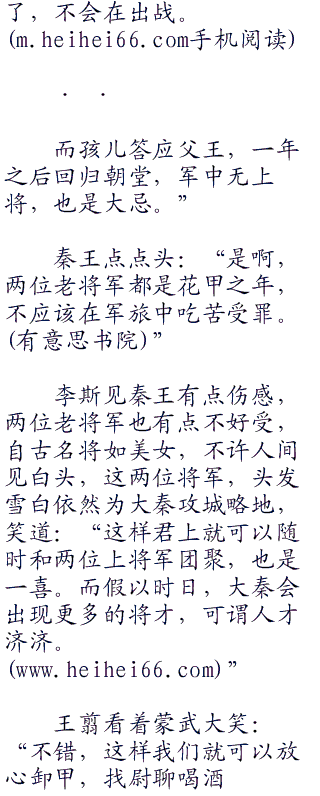 了，不会在出战。
(m.heihei66.com手机阅读)
. .
而孩儿答应父王，一年
之后回归朝堂，军中无上
将，也是大忌。”
秦王点点头：“是啊，
两位老将军都是花甲之年，
不应该在军旅中吃苦受罪。
(有意思书院)”
李斯见秦王有点伤感，
两位老将军也有点不好受，
自古名将如美女，不许人间
见白头，这两位将军，头发
雪白依然为大秦攻城略地，
笑道：“这样君上就可以随
时和两位上将军团聚，也是
一喜。而假以时日，大秦会
出现更多的将才，可谓人才
济济。
(www.heihei66.com)”
王翦看着蒙武大笑：
“不错，这样我们就可以放
心卸甲，找尉聊喝酒